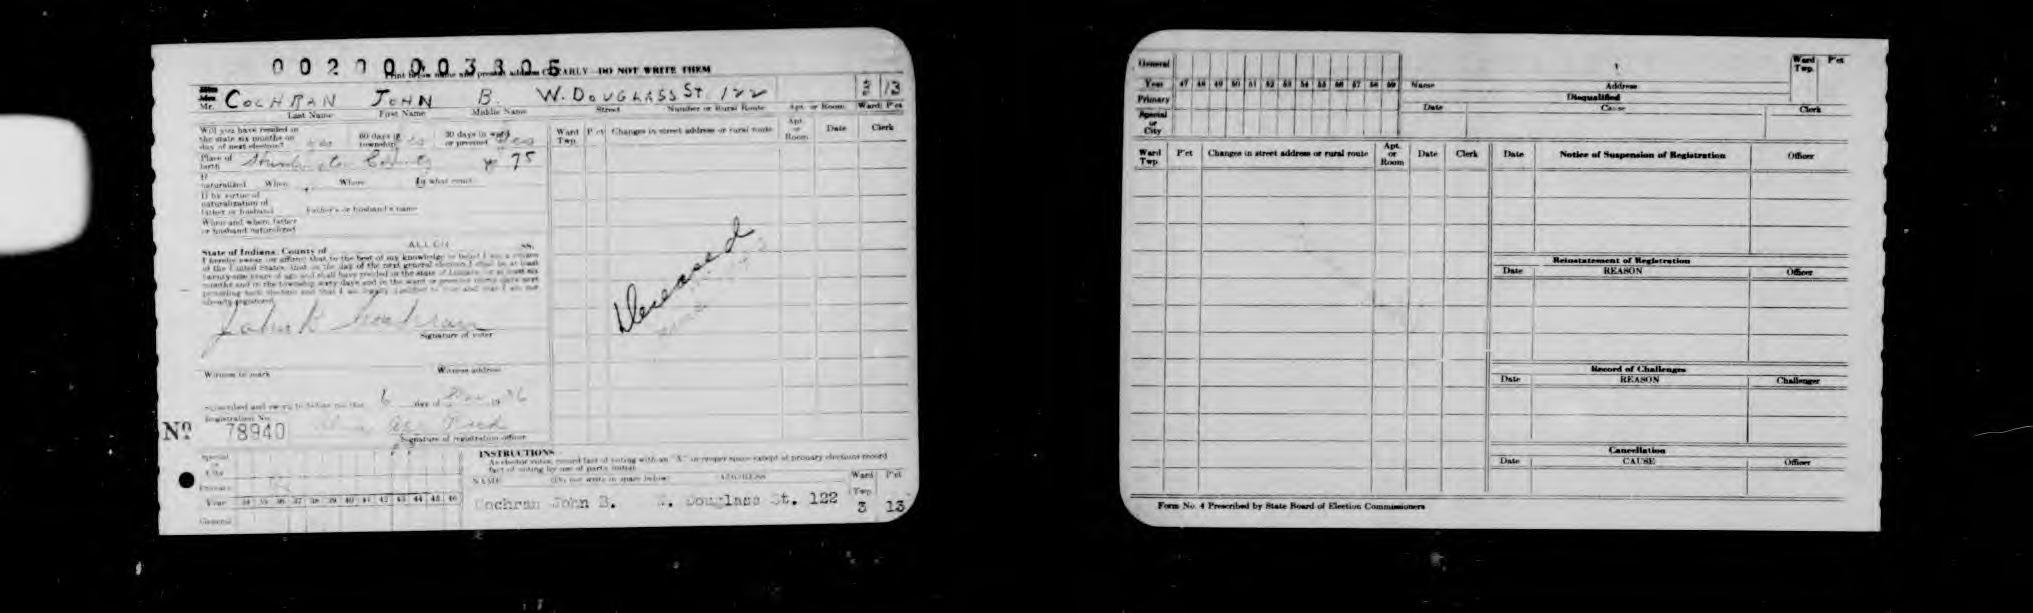 00200003305
Print below name and present address CLEARLY—DO NOT WRITE THEM
Mr. COCHRAN JOHN B. W. DOUGLASS ST 122 3 13
Last Name First Name Middle Name Street Number or Rural Route Apt. or Room Ward P'ct
Will you have resided in the state six months on day of next election? yes 60 days in township yes 30 days in ward or precinct yes
Place of birth County 75
If naturalized When Where In what court
If by virtue of naturalization of father or husband Father's or husband's name
When and where father or husband naturalized
State of Indiana, County of ALLEN ss.
I hereby swear (or affirm) that to the best of my knowledge or belief I am a citizen
of the United States, that on the day of the next general election I shall be at least
twenty-one years of age and shall have resided in the state of Indiana for at least six
months and in the township sixty days and in the ward or precinct thirty days next
preceding such election and that I am legally qualified to vote and that I am not
already registered.
John B Cochran
Signature of voter
Witness to mark Witness address
Subscribed and sworn to before me this 6 day of 19 36
Registration No.
Nº 78940
Signature of registration officer
Ward Twp. P'ct Changes in street address or rural route Apt. or Room Date Clerk
Deceased
INSTRUCTIONS
As elector votes, record fact of voting with an "A" in proper space except at primary elections record
fact of voting by use of party initial.
NAME (Do not write in space below) ADDRESS Ward Twp. P'ct
Cochran John B. W. Douglass St. 122 3 13
Special or City
Primary
Year 34 35 36 37 38 39 40 41 42 43 44 45 46
General
General
Year 47 48 49 50 51 52 53 54 55 56 57 58 59
Primary
Special or City
Name Address Ward Twp. P'ct
Disqualified
Date Cause Clerk
Ward Twp. P'ct Changes in street address or rural route Apt. or Room Date Clerk
Date Notice of Suspension of Registration Officer
Reinstatement of Registration
Date REASON Officer
Record of Challenges
Date REASON Challenger
Cancellation
Date CAUSE Officer
Form No. 4 Prescribed by State Board of Election Commissioners